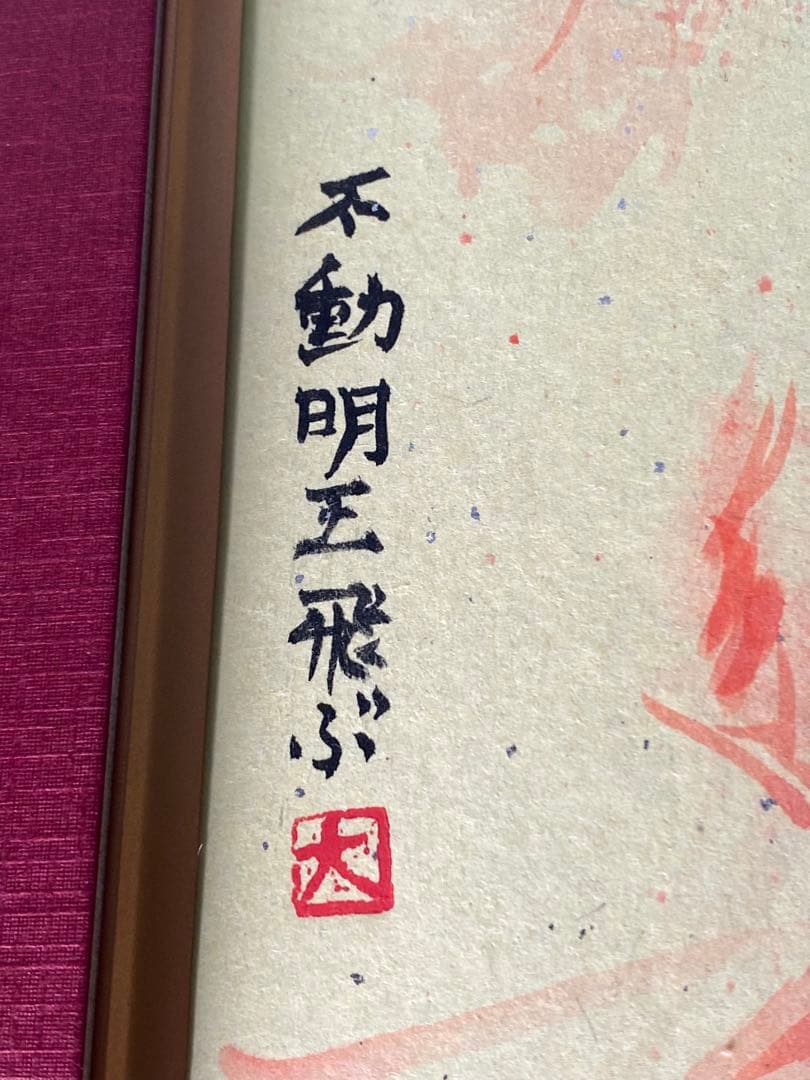 不動明王飛ぶ
大